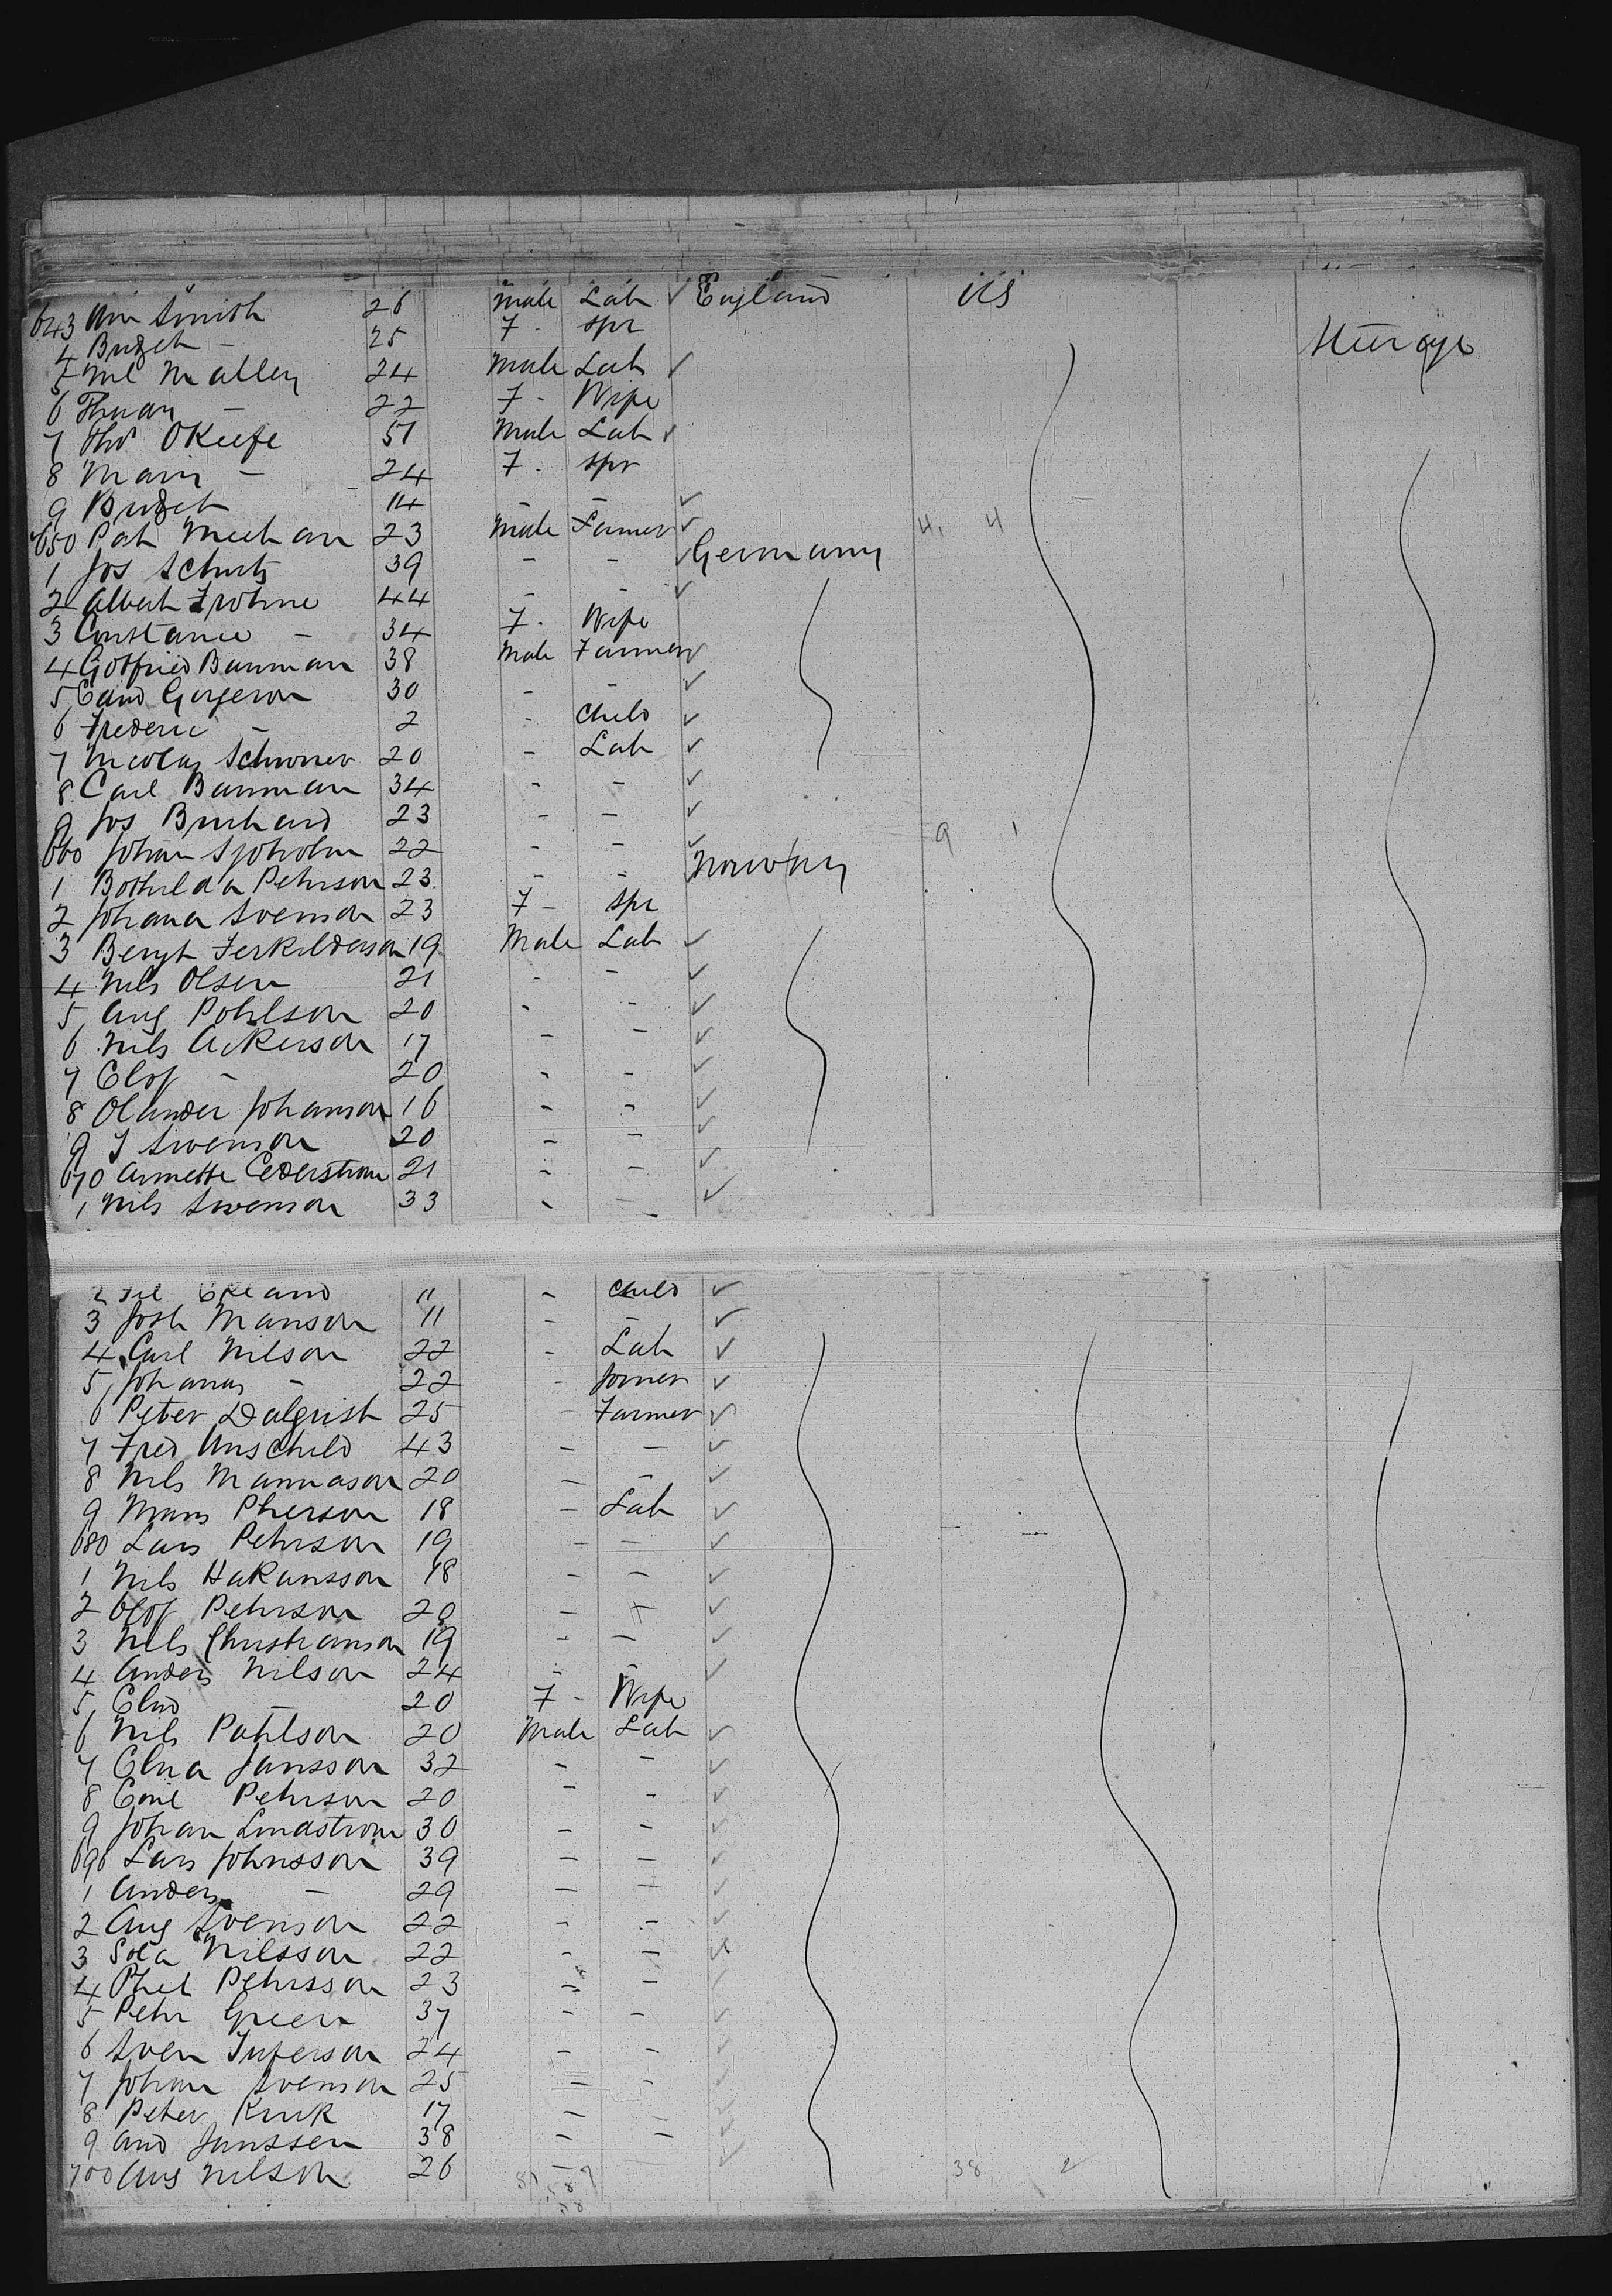 643 Wm Smith 26 Male Lab ✓ England US
4 Bridget - 25 F - Spr Steerage
5 Ml Malley 24 Male Lab ✓
6 - 22 F - Wife
7 Thos OKeefe 51 Male Lab ✓
8 Mary - 24 F - Spr
9 Bridget 14 - - ✓
650 Pat Meehan 23 Male Farmer ✓ 4, 4
1 Jos Schultz 39 - - ✓ Germany
2 Albert Frohne 44 - - ✓
3 Constance - 34 F - Wife
4 Gotfried Bauman 38 Male Farmer ✓
5 Edwd Gorgeron 30 - - ✓
6 Frederic - 2 - Child ✓
7 Nicolas Schwoner 20 - Lab ✓
8 Carl Bauman 34 - - ✓
9 Jos Burkard 23 - - ✓
660 Johan Sjoholm 22 - - ✓ Norway 9 1
1 Bothilda Pehrson 23 - -
2 Johana Svenson 23 F - Spr
3 Bengt Terkilderson 19 Male Lab ✓
4 Nils Olsen 21 - - ✓
5 Aug Pohlson 20 - - ✓
6 Nils Ackerson 17 - - ✓
7 Olof - 20 - - ✓
8 Olander Johanson 16 - - ✓
9 J Swenson 20 - - ✓
670 Annette Cederstrom 21 - - ✓
1 Nils Swenson 33 - - ✓
2 11 - Child ✓
3 Josh Manson 11 - - ✓
4 Carl Nilson 22 - Lab ✓
5 Johanas - 22 - Joiner ✓
6 Peter Dalquist 25 - Farmer ✓
7 Fred Anschild 43 - - ✓
8 Nils Mannason 20 - - ✓
9 Mans Pherson 18 - Lab ✓
680 Lars Pehrson 19 - - ✓
1 Nils Hakansson 18 - - ✓
2 Olof Pehrson 20 - - ✓
3 Nils Christianson 19 - - ✓
4 Anders Nilson 24 - - ✓
5 Elnd - 20 F - Wife
6 Nils Pahlson 20 Male Lab ✓
7 Elna Jansson 32 - - ✓
8 Emil Pehrson 20 - - ✓
9 Johan Lindstrom 30 - - ✓
690 Lars Johnsson 39 - - ✓
1 Anders - 29 - - ✓
2 Aug Svenson 22 - - ✓
3 Sola Nilsson 22 - - ✓
4 Phel Pehrsson 23 - - ✓
5 Pehr Green 37 - - ✓
6 Sven Juperson 24 - - ✓
7 Johan Svenson 25 - - ✓
8 Peter Kruk 17 - - ✓
9 And Janssen 38 - - ✓
700 Aug Nilson 26 - 38, 2